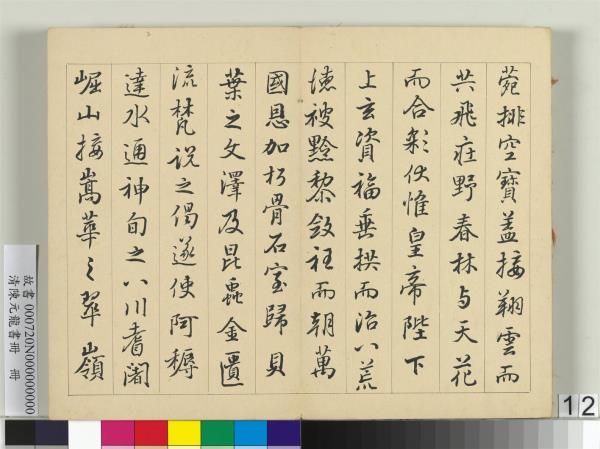 菀排空寶蓋接翔雲而
共飛庄野春林与天花
而合彩伏惟皇帝陛下
上玄資福垂拱而治八荒
德被黔黎斂衽而朝萬
國恩加朽骨石室歸貝
葉之文澤及昆蟲金匱
流梵說之偈遂使阿耨
達水通神甸之八川耆闍
崛山接嵩華之翠嶺
故書 000720N000000000
清陳元龍書冊 冊
12